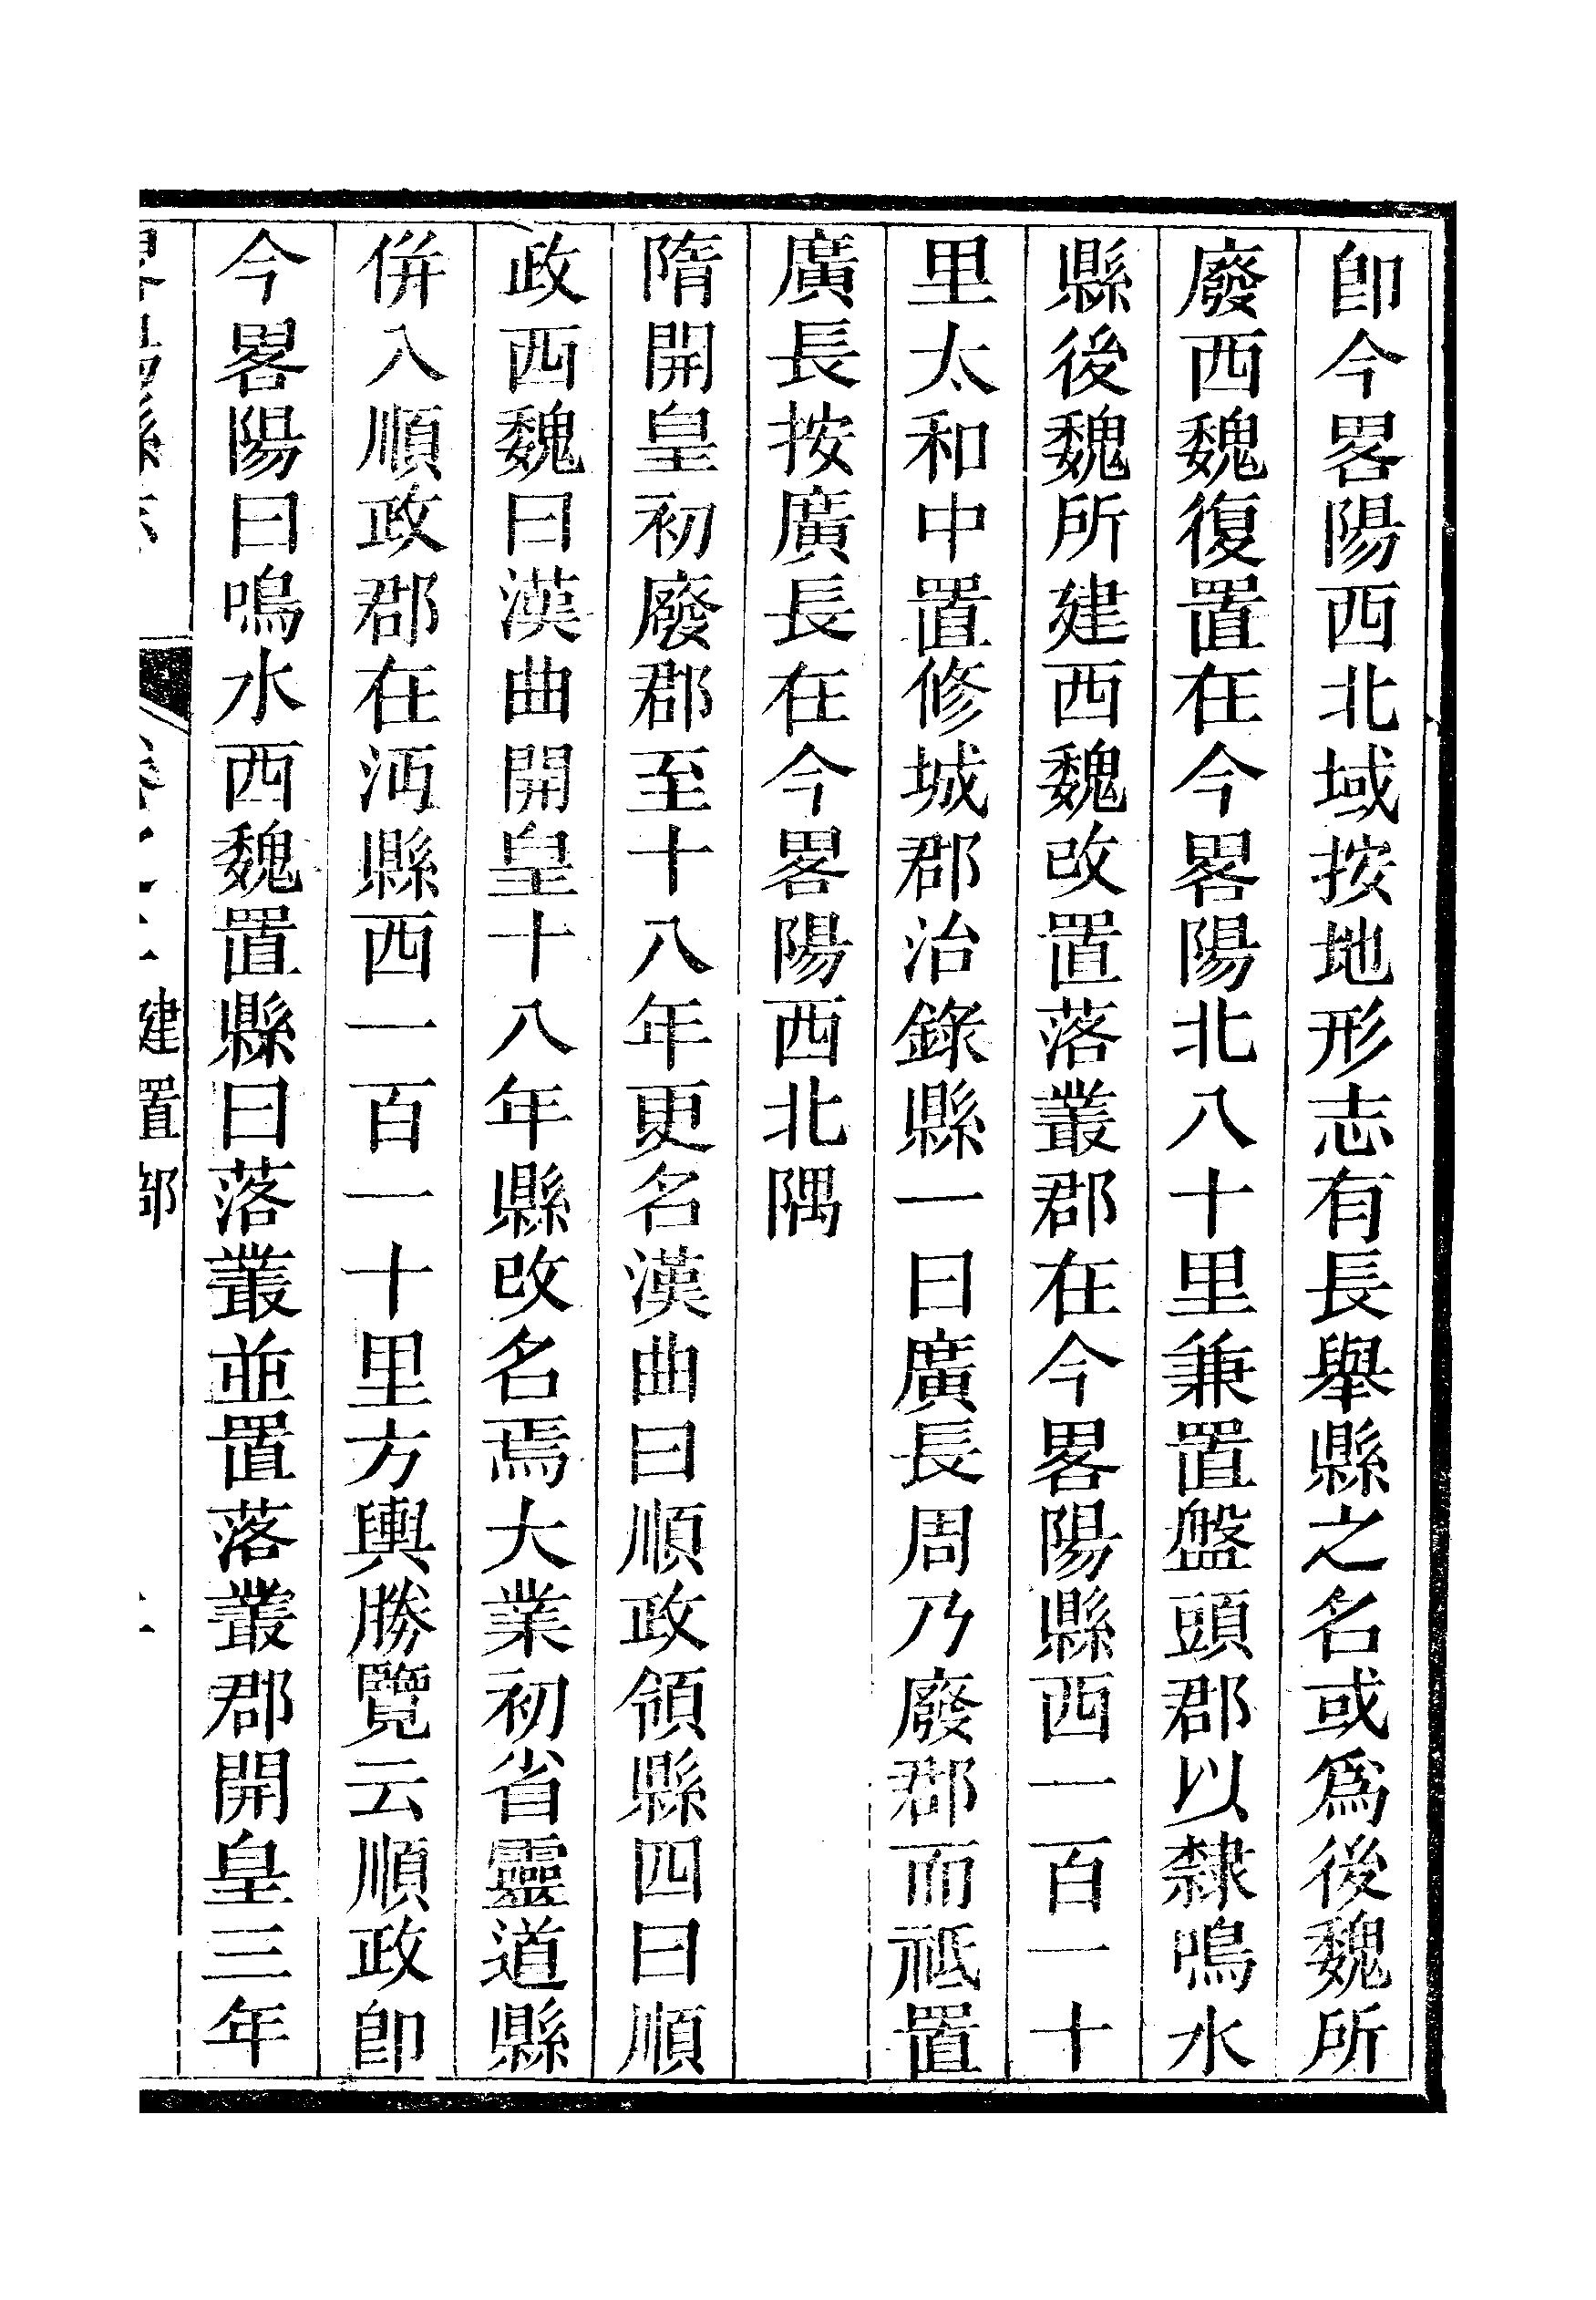 卽今畧陽西北域按地形志有長舉縣之名或爲後魏所
廢西魏復置在今畧陽北八十里兼置盤頭郡以隸鳴水
縣後魏所建西魏改置落叢郡在今畧陽縣西一百一十
里太和中置修城郡治錄縣一曰廣長周乃廢郡而祗置
廣長按廣長在今畧陽西北隅
隋開皇初廢郡至十八年更名漢曲曰順政領縣四曰順
政西魏曰漢曲開皇十八年縣改名焉大業初省靈道縣
併入順政郡在沔縣西一百一十里方輿勝覽云順政卽
今畧陽曰鳴水西魏置縣曰落叢並置落叢郡開皇三年
建置部